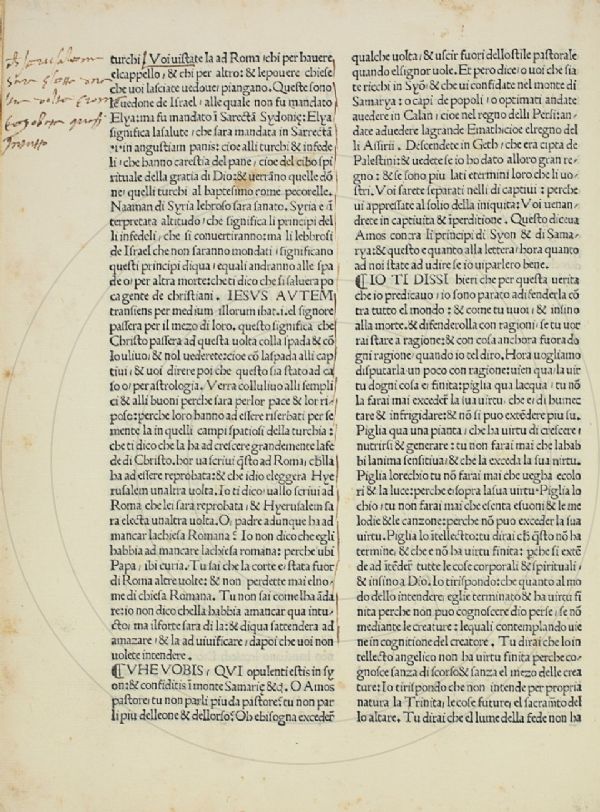 turchi. Voi uistate la ad Roma, chi per hauere
el cappello, & chi per altro: & le pouere chiese
che uoi lasciate uedoue, piangano. Queste sono
le uedone de Israel, alle quale non fu mandato
Elya: ma fu mandato ĩ Sarectã Sydonię: Elya
significa la salute, che sara mandata in Sarrectã
.i. in angustiam panis: cioe alli turchi & infede
li, che hanno carestia del pane, cioe del cibo spi
rituale della gratia di Dio: & uerrãno quelle dõ
ne, quelli turchi al baptesimo come pecorelle.
Naaman di Syria lebroso sara sanato. Syria e ĩ
terpretata altitudo, che significa li principi del
li infedeli, che si conuertiranno: ma li lebbrosi
de Israel che non saranno mondati, significano
questi principi di qua, equali andranno alle spa
de o, per altra morte: che ti dico che si saluera po
ca gente de christiani. IESVS AVTEM
transiens per medium illorum ibat .i. el signore
passera per il mezo di loro. questo significa che
Christo passera ad questa uolta colla spada & cõ
lo uliuo, & nol uederete: cioe cõ la spada alli cap
tiui, & uoi direte poi che questo sia stato ad ca
so o, per astrologia. Verra coll uliuo alli sempli
ci & alli buoni perche sara per lor pace & lor ri-
poso: perche loro hanno ad essere riserbati per se
mente la in quelli campi spatiosi della turchia:
che ti dico che la ha ad crescere grandemente la fe
de di Christo. hor ua scriui q̃sto ad Roma, ch̃lla
ha ad essere reprobata: & che idio eleggera Hye
rusalem unaltra uolta. Io ti dico: ua llo scriui ad
Roma che lei sara reprobata, & Hyerusalem sa
ra electa unaltra uolta. O, padre adunque ha ad
mancar la chiesa Romana? Io non dico che egli
habbia ad mancare la chiesa romana: perche ubi
Papa, ibi curia. Tu sai che la corte e, stata fuor
di Roma altre uolte: & non perdette mai el no-
me di chiesa Romana. Tu non sai come lha ãda
re: io non dico che lla habbia amancar qua in tu-
cto, ma il forte sara di la: & di qua sattendera ad
amazare, & la ad uiuificare, dapoi che uoi non
uolete intendere.
⁋VHE VOBIS, QVI opulenti estis in sy
on: & confiditis ĩ monte Samarię &c̃. O Amos
pastore, tu non parli piu da pastore: tu non par
li piu del leone & dell orso: Oh e bisogna exceder
qualche uolta, & uscir fuori dello stile pastorale
quando el signor uole. Et pero dice, o uoi che sia
te ricchi in Syõ, & che ui confidate nel monte di
Samarya: o capi de popoli, o optimati andate
auedere in Calan, cioe nel regno delli Persi: an-
date aduedere la grande Emath: cioe el regno del
li Assirii. Descendete in Geth, che era cipta de
Palestini: & uedete se io ho dato alloro gran re-
gno: & se sono piu lati e termini loro che li uo-
stri. Voi sarete separati nelli di captiui: perche
ui appressate al solio della iniquita: Voi uenan-
drete in captiuita & ĩperditione. Questo diceua
Amos contra li principi di Syon & di Sama-
rya: & questo e quanto alla lettera, hora quanto
ad noi state ad udire se io ui parlero bene.
⁋IO TI DISSI hieri che per questa uerita
che io predicauo, io sono parato ad difenderla cõ
tra tutto el mondo: & come tu uuoi, & insino
alla morte. & difenderolla con ragioni, se tu uor
rai stare a ragione: & con cosa anchora fuora do
gni ragione, quando io tel diro. Hora uogliamo
disputarla un poco con ragione: uien qua, la uir
tu dogni cosa e, finita: piglia qua lacqua, tu nõ
la farai mai exceder la sua uirtu, che e, di humec
tare & infrigidare: & nõ si puo extẽdere piu su.
Piglia qua una pianta, che ha uirtu di crescere,
nutrirsi & generare: tu non farai mai che la hab
bi lanima sensitiua, & che la exceda la sua uirtu.
Piglia lorechio tu nõ farai mai che uegha e colo
ri & la luce: perche e, sopra la sua uirtu. Piglia lo
chio, tu non farai mai che esenta e suoni & le me
lodie & le canzone: perche nõ puo exceder la sua
uirtu. Piglia lo ĩtellecto: tu dirai ch̃ q̃sto nõ ha
termine, & che e nõ ha uirtu finita: p̱che si extẽ
de ad ĩtẽder tutte le cose corporali & spirituali,
& insino a Dio. Io ti rispondo: che quanto al mo
do dello intendere, egli e terminato & ha uirtu fi
nita perche non puo cognoscere dio per se, se nõ
mediante le creature: lequali contemplando uie
ne in cognitione del creatore. Tu dirai che lo in
tellecto angelico non ha uirtu finita perche co-
gnosce sanza discorso & sanza el mezo delle crea
ture: Io ti rispondo che non intende per propria
natura la Trinita, le cose future, el sacramẽto del
lo altare. Tu dirai che el lume della fede non ha